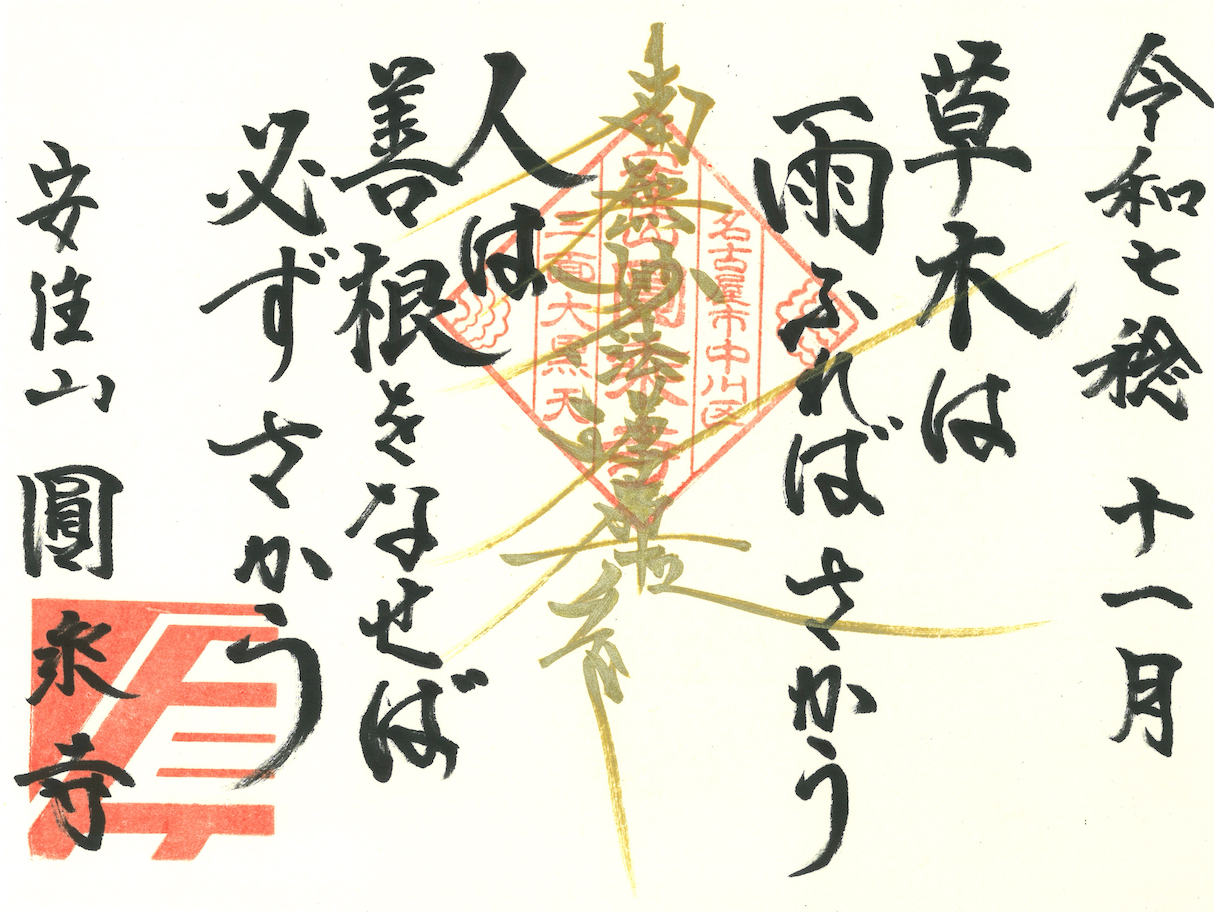 令和七稔 十一月
草木は
雨ふればさかう
南無妙法蓮華経
名古屋市中川区
三面大黒天
人は
善根をなせば
必ずさかう
安住山 圓 寺